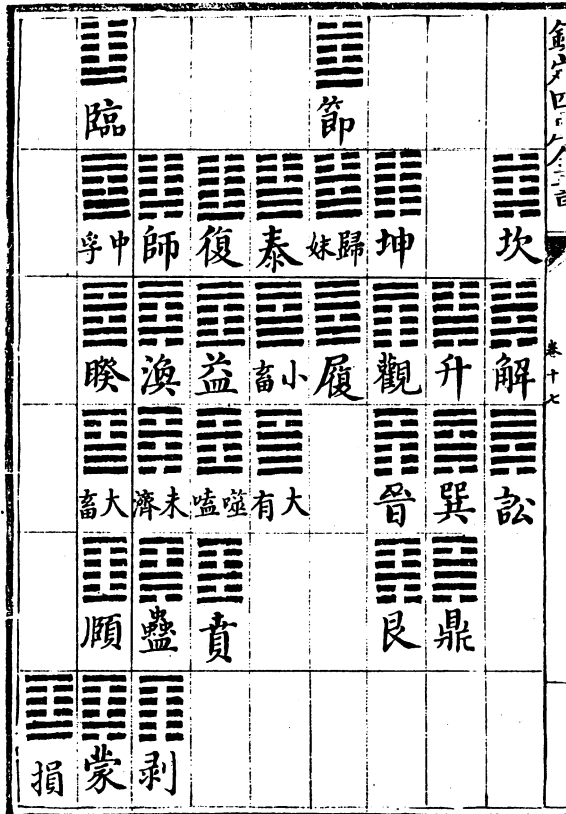 欽定四庫全書
卷十七
坎 解 訟
升 巽 鼎
坤 觀 晉 艮
節 歸妹 履
泰 小畜 大有
復 益 噬嗑 賁
師 渙 未濟 蠱 剥
臨 中孚 睽 大畜 頤 蒙
損